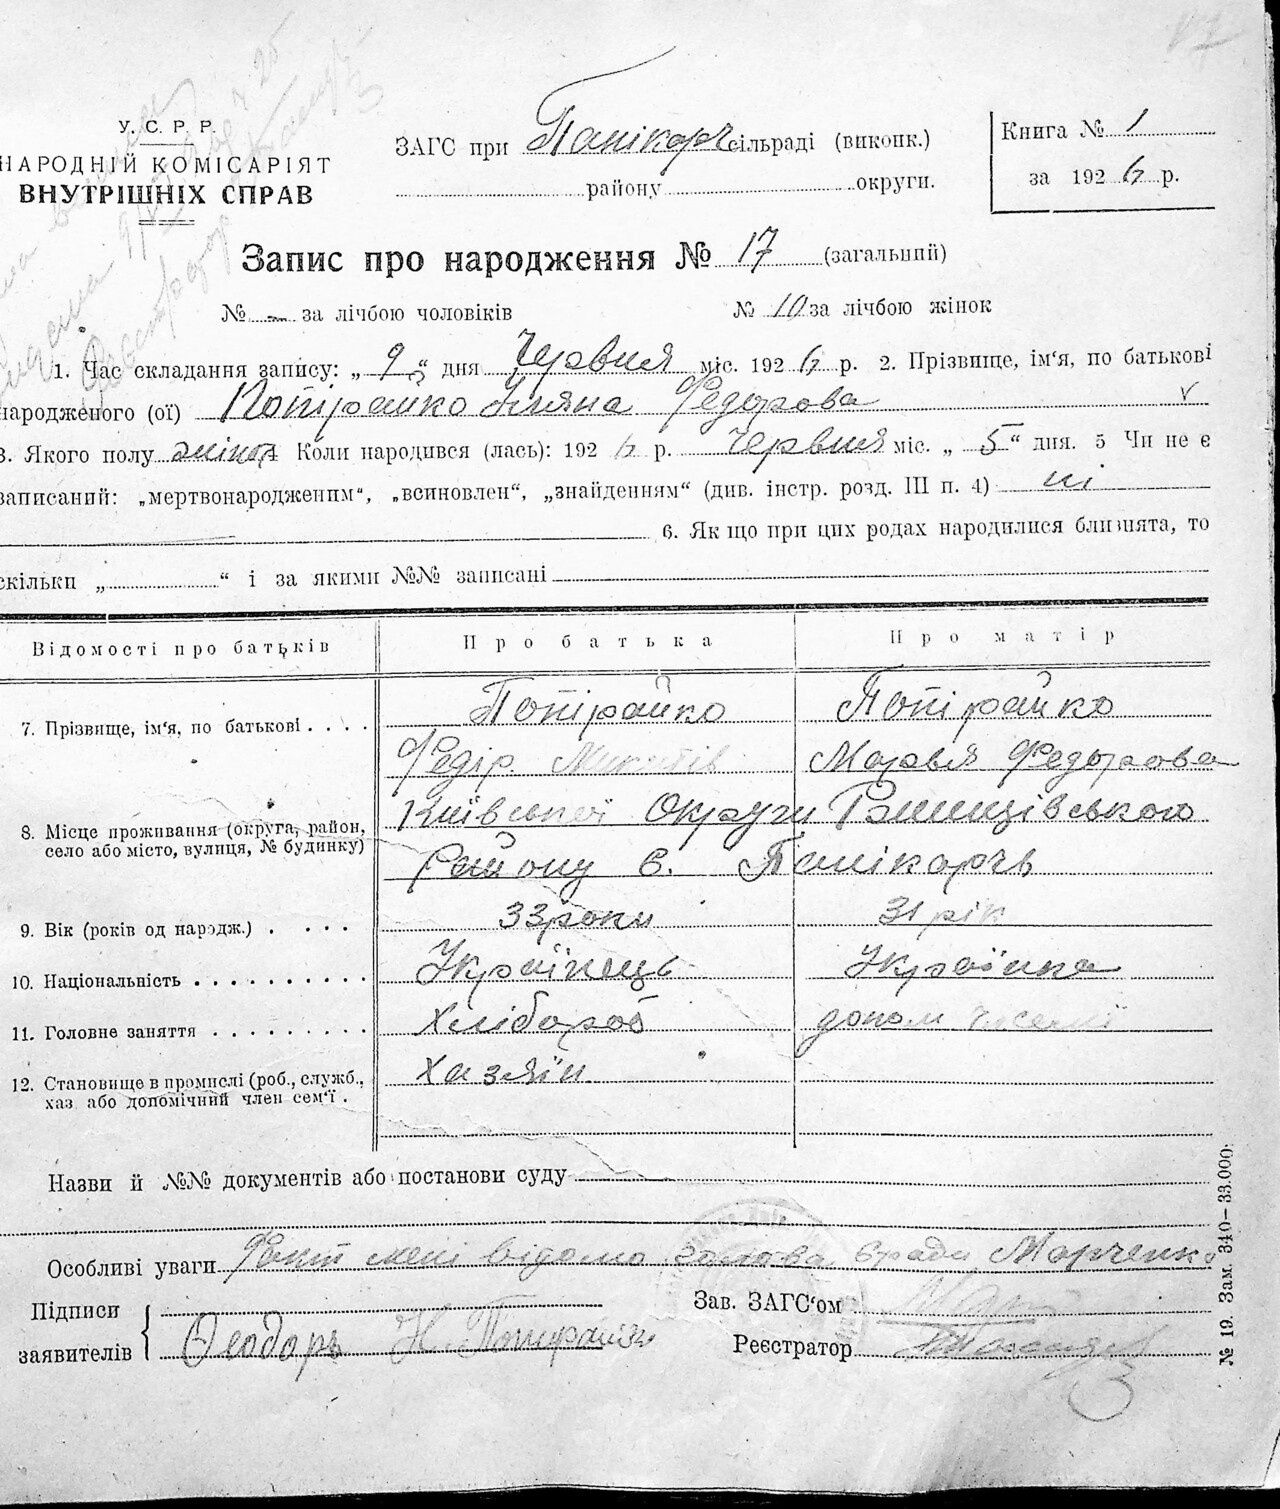 У. С. Р. Р.
НАРОДНІЙ КОМІСАРІЯТ
ВНУТРІШНІХ СПРАВ
ЗАГС при Панікарч сільраді (виконк.)
району округи.
Книга № 1
за 1926 р.
Запис про народження № 17 (загальний)
№ - за лічбою чоловіків № 10 за лічбою жінок
1. Час складання запису: „ 9 “ дня Червня міс. 1926 р. 2. Прізвище, ім‘я, по батькові
народженого (ої) Потірайко Уляна Федорова
3. Якого полу жіноч 4 Коли народився (лась): 1926 р. Червня міс. „ 5 “ дня. 5 Чи не є
записаний: „мертвонародженим“, „всиновлен“, „знайденням“ (див. інстр. розд. III п. 4) ні
6. Якщо при цих родах народилися близнята, то
скільки „ “ і за якими №№ записані
Відомості про батьків Про батька Про матір
7. Прізвище, ім‘я, по батькові . . . . Потірайко Потірайко
Федір Микитів Марья Федорова
8. Місце проживання (округа, район, Київської Округи
село або місто, вулиця, № будинку) Району с. Панікарчь
9. Вік (років од народж.) . . . . 33 роки 31 рік
10. Національність . . . . . . . . . . Українець Українка
11. Головне заняття . . . . . . . . . Хлібороб допом
12. Становище в промислі (роб., служб., Хазяїн
хаз або допомічний член сем‘ї .
Назви й №№ документів або постанови суду
Особливі уваги Факт мені відомо голова сради Марченко
Підписи
заявителів Феодоръ Н.
Зав. ЗАГС‘ом
Реєстратор
№ 19. Зам. 340—33.000.